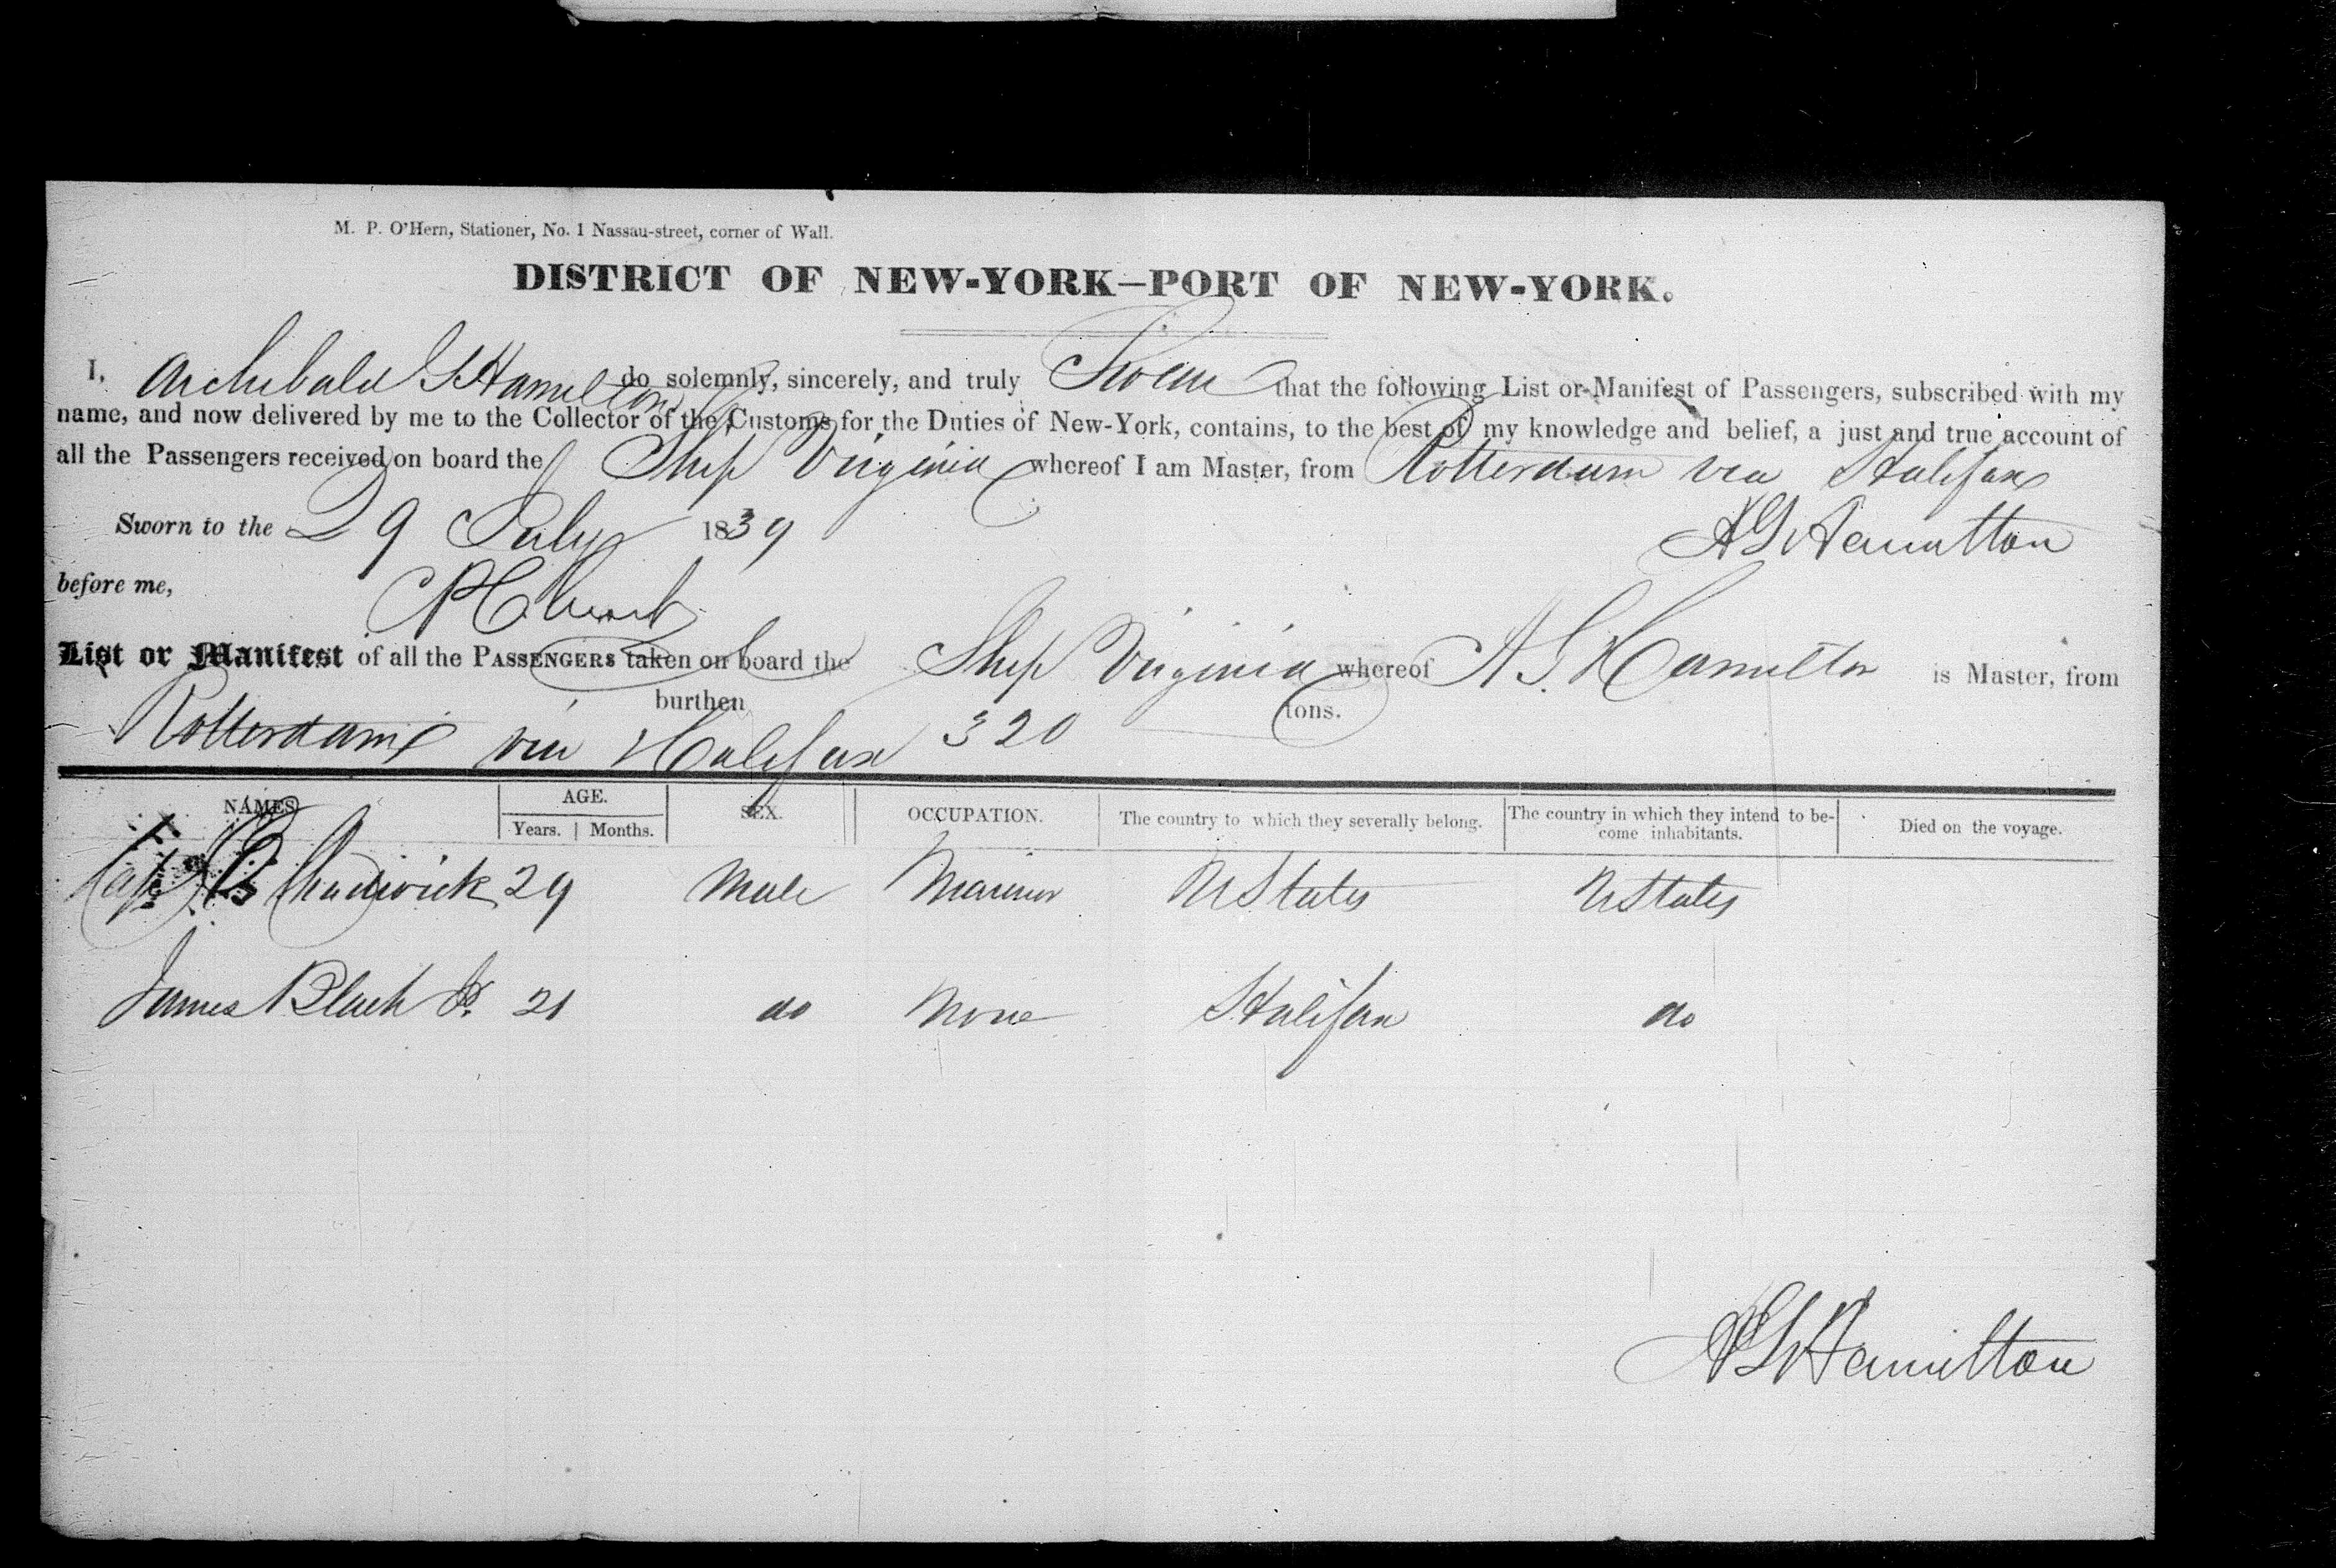 M. P. O'Hern, Stationer, No. 1 Nassau-street, corner of Wall.
DISTRICT OF NEW-YORK—PORT OF NEW-YORK.
I, Archibald G Hamilton do solemnly, sincerely, and truly Swear that the following List or Manifest of Passengers, subscribed with my
name, and now delivered by me to the Collector of the Customs for the Duties of New-York, contains, to the best of my knowledge and belief, a just and true account of
all the Passengers received on board the Ship Virginia whereof I am Master, from Rotterdam via Halifax
Sworn to the 29 July 1839 A G Hamilton
before me,
List or Manifest of all the PASSENGERS taken on board the Ship Virginia whereof A G Hamilton is Master, from
Rotterdam via Halifax burthen 320 tons.
NAMES AGE. Years. Months. SEX. OCCUPATION. The country to which they severally belong. The country in which they intend to become inhabitants. Died on the voyage.
Capt Chadwick 29 Male Mariner U States U States
James Black Jr. 21 do None Halifax do
A G Hamilton